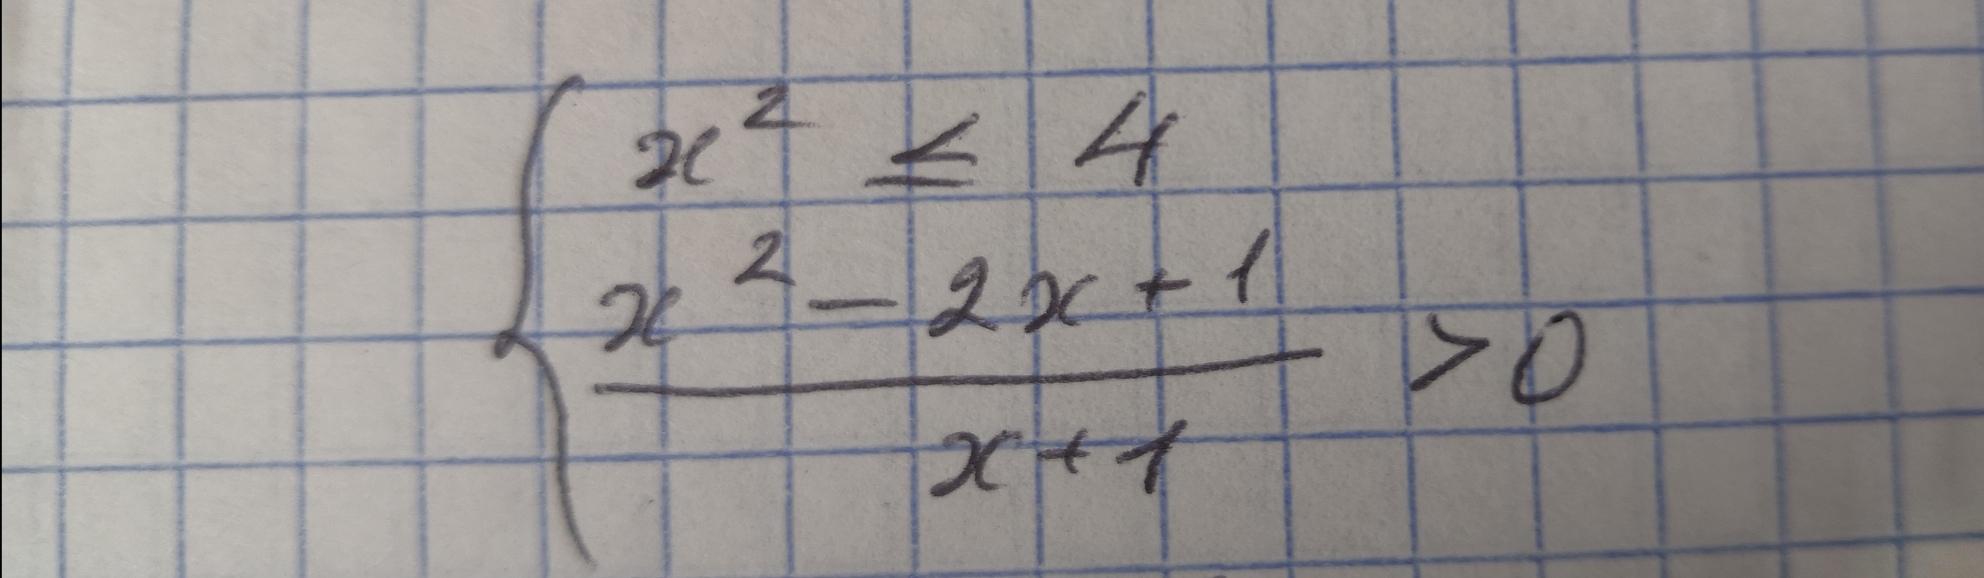 x² ≤ 4
x² - 2x + 1
> 0
x + 1